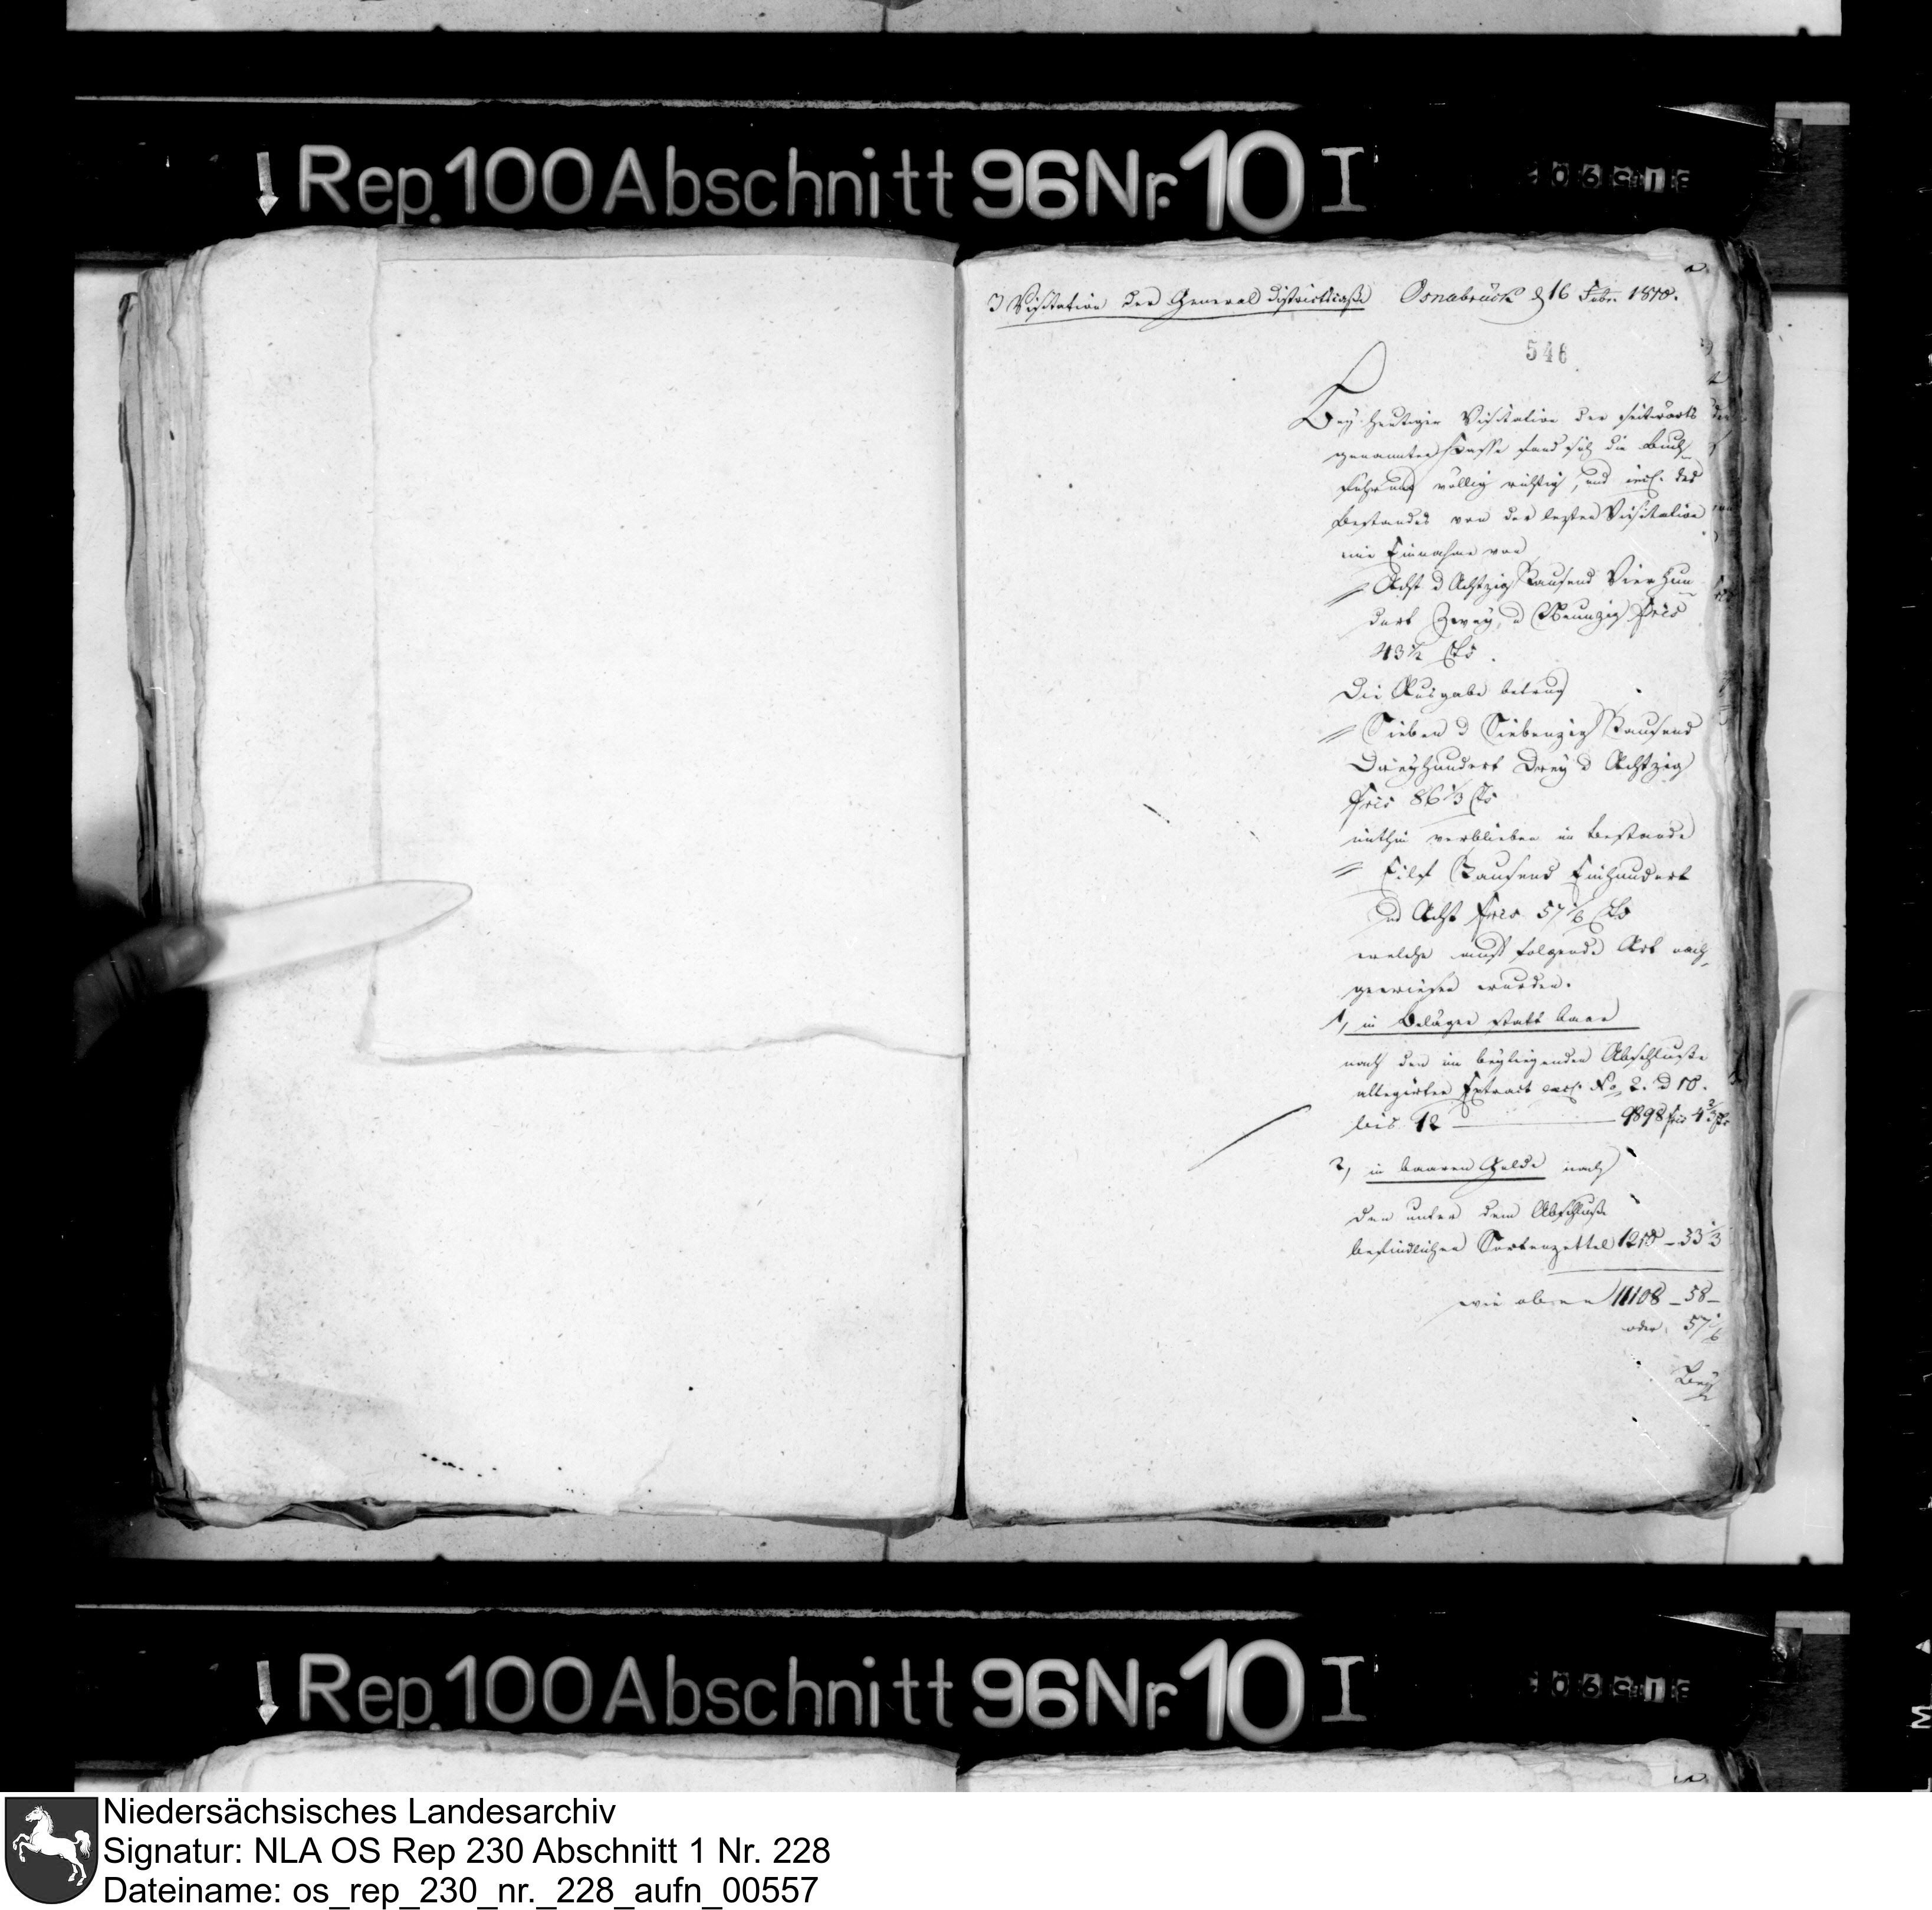 Rep. 100 Abschnitt 96 Nr. 10 I
J Visitation der General Districtscaße Osnabrück d 16 Febr. 1810.
546
Bey heutiger Visitation der seitwärts
genannten Casse fand sich die Buch
führung völlig richtig, und incl. des
Bestandes von der lezten Visitation
eine Einnahme von
Acht d Achtzig Tausend Vier Hun
dert Zwey d Neunzig frcs
43 1/2 Cts.
Die Ausgabe betrug
Sieben d Siebenzig Tausend
Dreyhundert Drey d Achtzig
frcs 86 1/3 Cts
mithin verblieben in Bestande
Eilf Tausend Einhundert
und Acht frcs 57 1/6 Cts
welche auf folgende Art nach
gewiesen wurden.
1, in Beläger statt baar
nach den im beyliegenden Abschluße
allegirten Extract excl. No 2. d 10.
bis 12 9898 frcs 4 2/3 Cts
2, in baaren Gelde nach
den unter dem Abschluße
befindlichen Sortenzettel 1210 - 33 1/3
wie oben 11108 - 58 -
oder 57 1/6
Bey
Rep. 100 Abschnitt 96 Nr. 10 I
Niedersächsisches Landesarchiv
Signatur: NLA OS Rep 230 Abschnitt 1 Nr. 228
Dateiname: os_rep_230_nr._228_aufn_00557